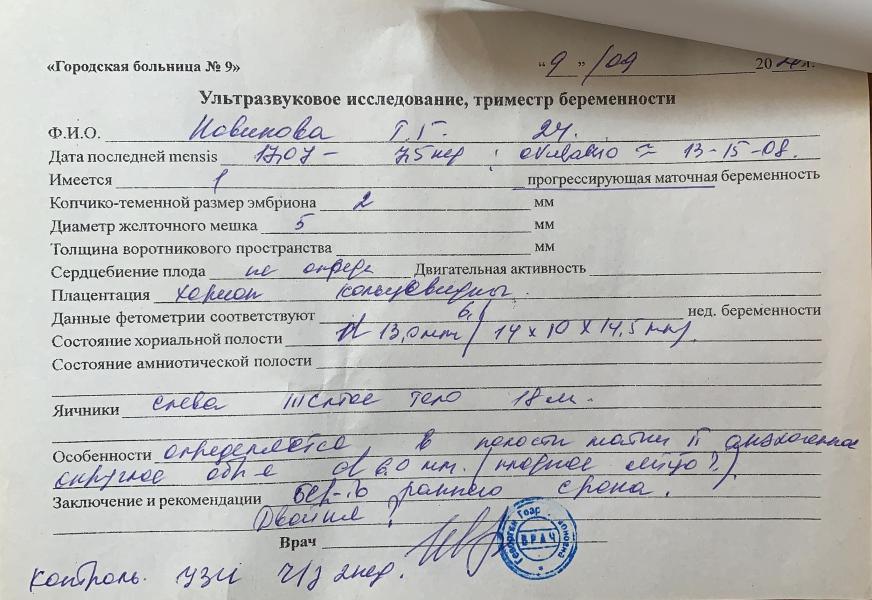 «Городская больница № 9»
" 9 " /09 20 г.
Ультразвуковое исследование, триместр беременности
Ф.И.О. Новикова Г.Г. 24.
Дата последней mensis 17.07 - 7,5 нед ; ≈ 13-15-08.
Имеется 1 прогрессирующая маточная беременность
Копчико-теменной размер эмбриона 2 мм
Диаметр желточного мешка 5 мм
Толщина воротникового пространства мм
Сердцебиение плода не опреде Двигательная активность
Плацентация хорион кольцевидный.
Данные фетометрии соответствуют 6,1 нед. беременности
Состояние хориальной полости d 13,0 мм / 14 x 10 x 14,5 мм /
Состояние амниотической полости
Яичники слева желтое тело 18 м.
Особенности определяется в полости матки II анэхогенное
округлое обр-е d 6.0 мм. / плодное яйцо ? /.
Заключение и рекомендации бер-ть раннего срока.
Двойня ?
Врач
ВРАЧ
Контроль УЗИ ч/з 2 нед.